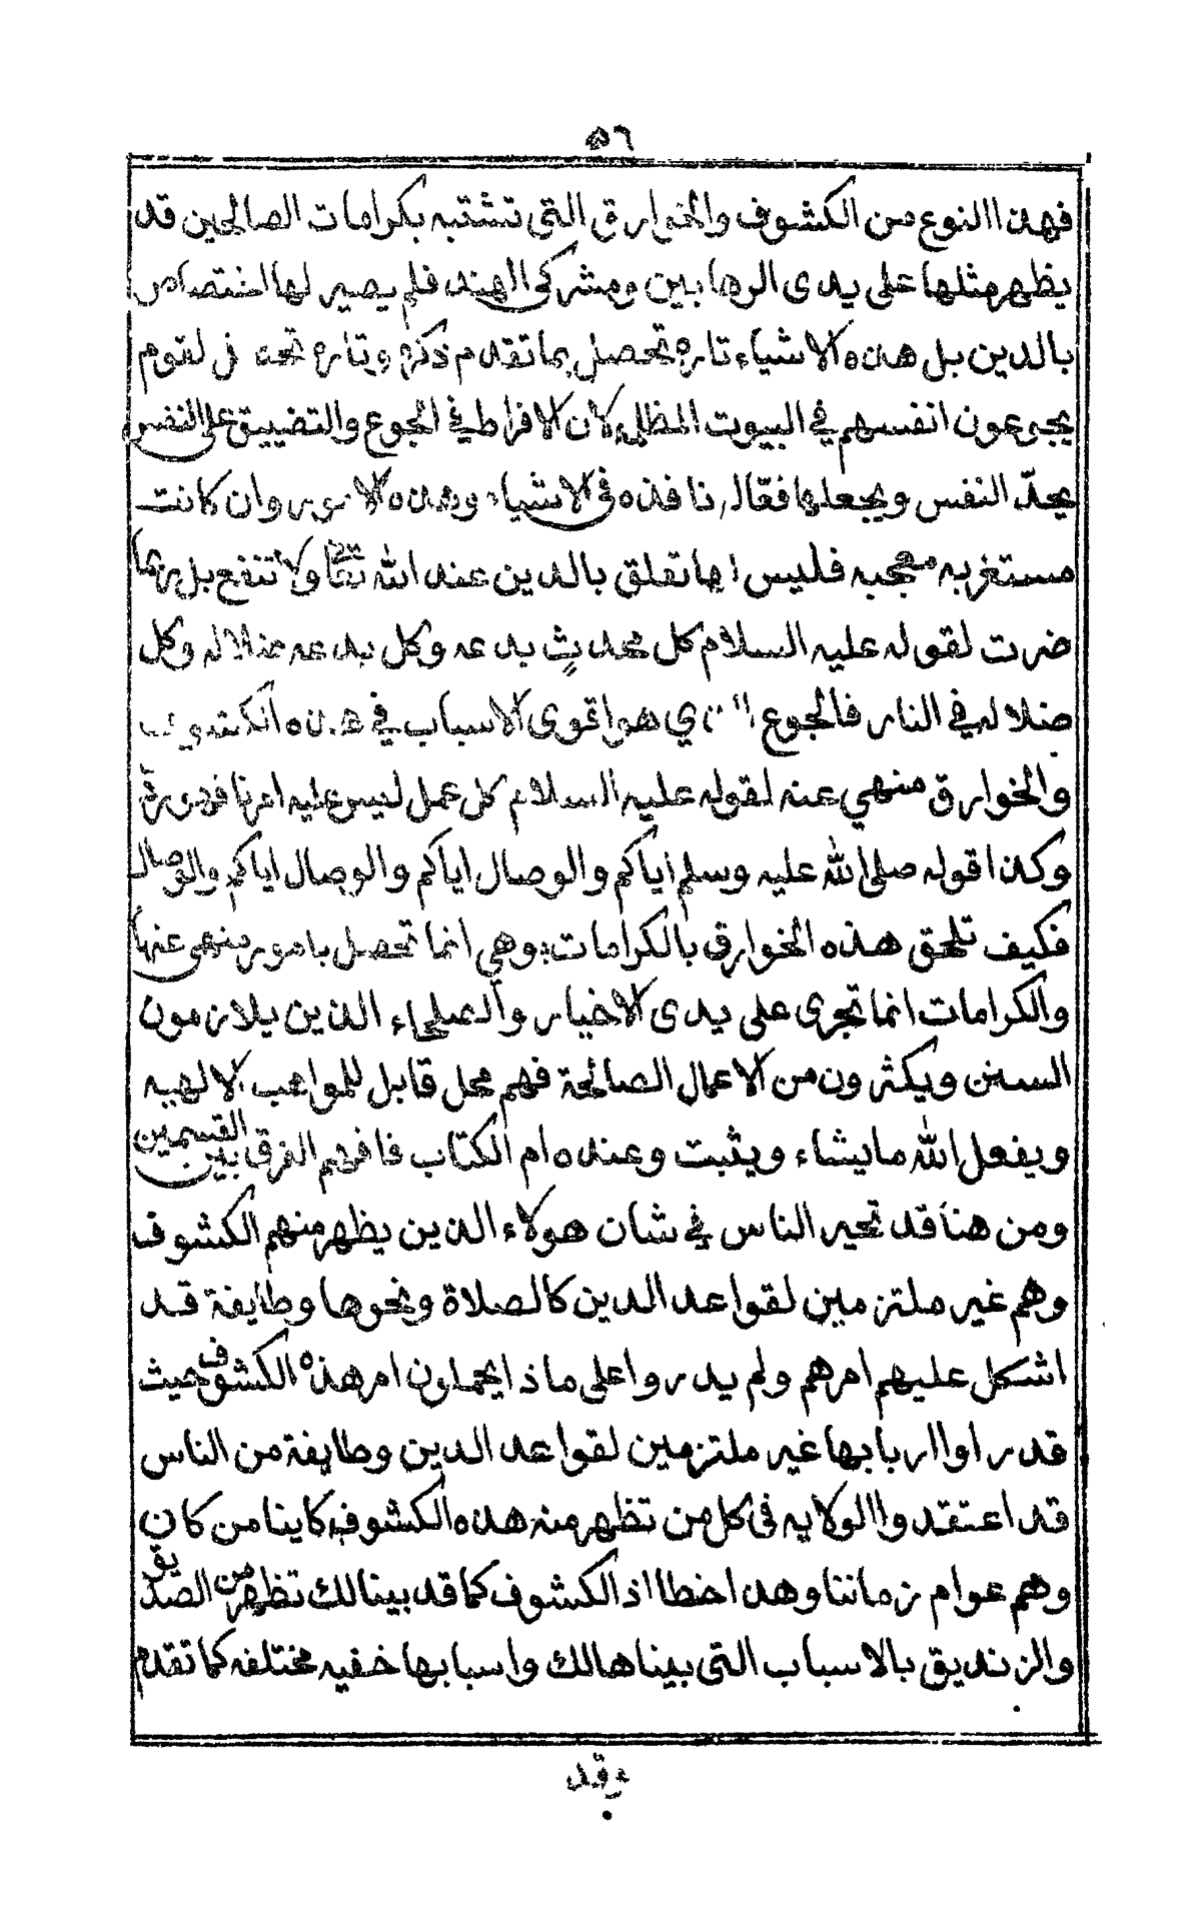 ٥٦
فهذا النوع من الكشوف والخوارق التى تشتبه بكرامات الصالحين قد
يظهر مثلها على يدى الرهابين ومشركى الهند فلم يصير لها اختصاص
بالدين بل هذه الاشياء تاره تحصل بما تقدم ذكره وتاره تحدث لقوم
يجوعون انفسهم في البيوت المظلمه لان الافراط في الجوع والتضييق على النفس
يحدّ النفس ويجعلها فعّاله نافذه فى الاشياء وهذه الامور وان كانت
مستغربه معجبه فليس لها تعلق بالدين عند الله تعالى ولا تنفع بل ربما
ضرت لقوله عليه السلام كل محدث بدعه وكل بدعه ضلاله وكل
ضلاله في النار فالجوع الذي هو اقوى الاسباب في هذه الكشوف
والخوارق منهي عنه لقوله عليه السلام كل عمل ليس عليه امرنا فهو ردّ
وكذا قوله صلى الله عليه وسلم اياكم والوصال اياكم والوصال اياكم والوصال
فكيف تلحق هذه الخوارق بالكرامات وهي انما تحصل بامور ينهى عنها
والكرامات انما تجرى على يدى الاخيار والصلحاء الذين يلازمون
السنن ويكثرون من الاعمال الصالحة فهم محل قابل للمواهب الالهيه
ويفعل الله ما يشاء ويثبت وعنده ام الكتاب فافهم الفرق بين القسمين
ومن هنا قد تحير الناس في شان هولاء الذين يظهر منهم الكشوف
وهم غير ملتزمين لقواعد الدين كالصلاة ونحوها وطايفة قد
اشكل عليهم امرهم ولم يدروا على ماذا يحملون امر هذه الكشوف حيث
قد راوا اربابها غير ملتزمين لقواعد الدين وطايفة من الناس
قد اعتقدوا الولايه فى كل من تظهر منه هذه الكشوف كاينا من كان
وهم عوام زماننا وهذا خطا اذ الكشوف كما قد بينا لك تظهر من الصديق
والزنديق بالاسباب التى بيناها لك واسبابها خفيه مختلفه كما تقدم
وقد